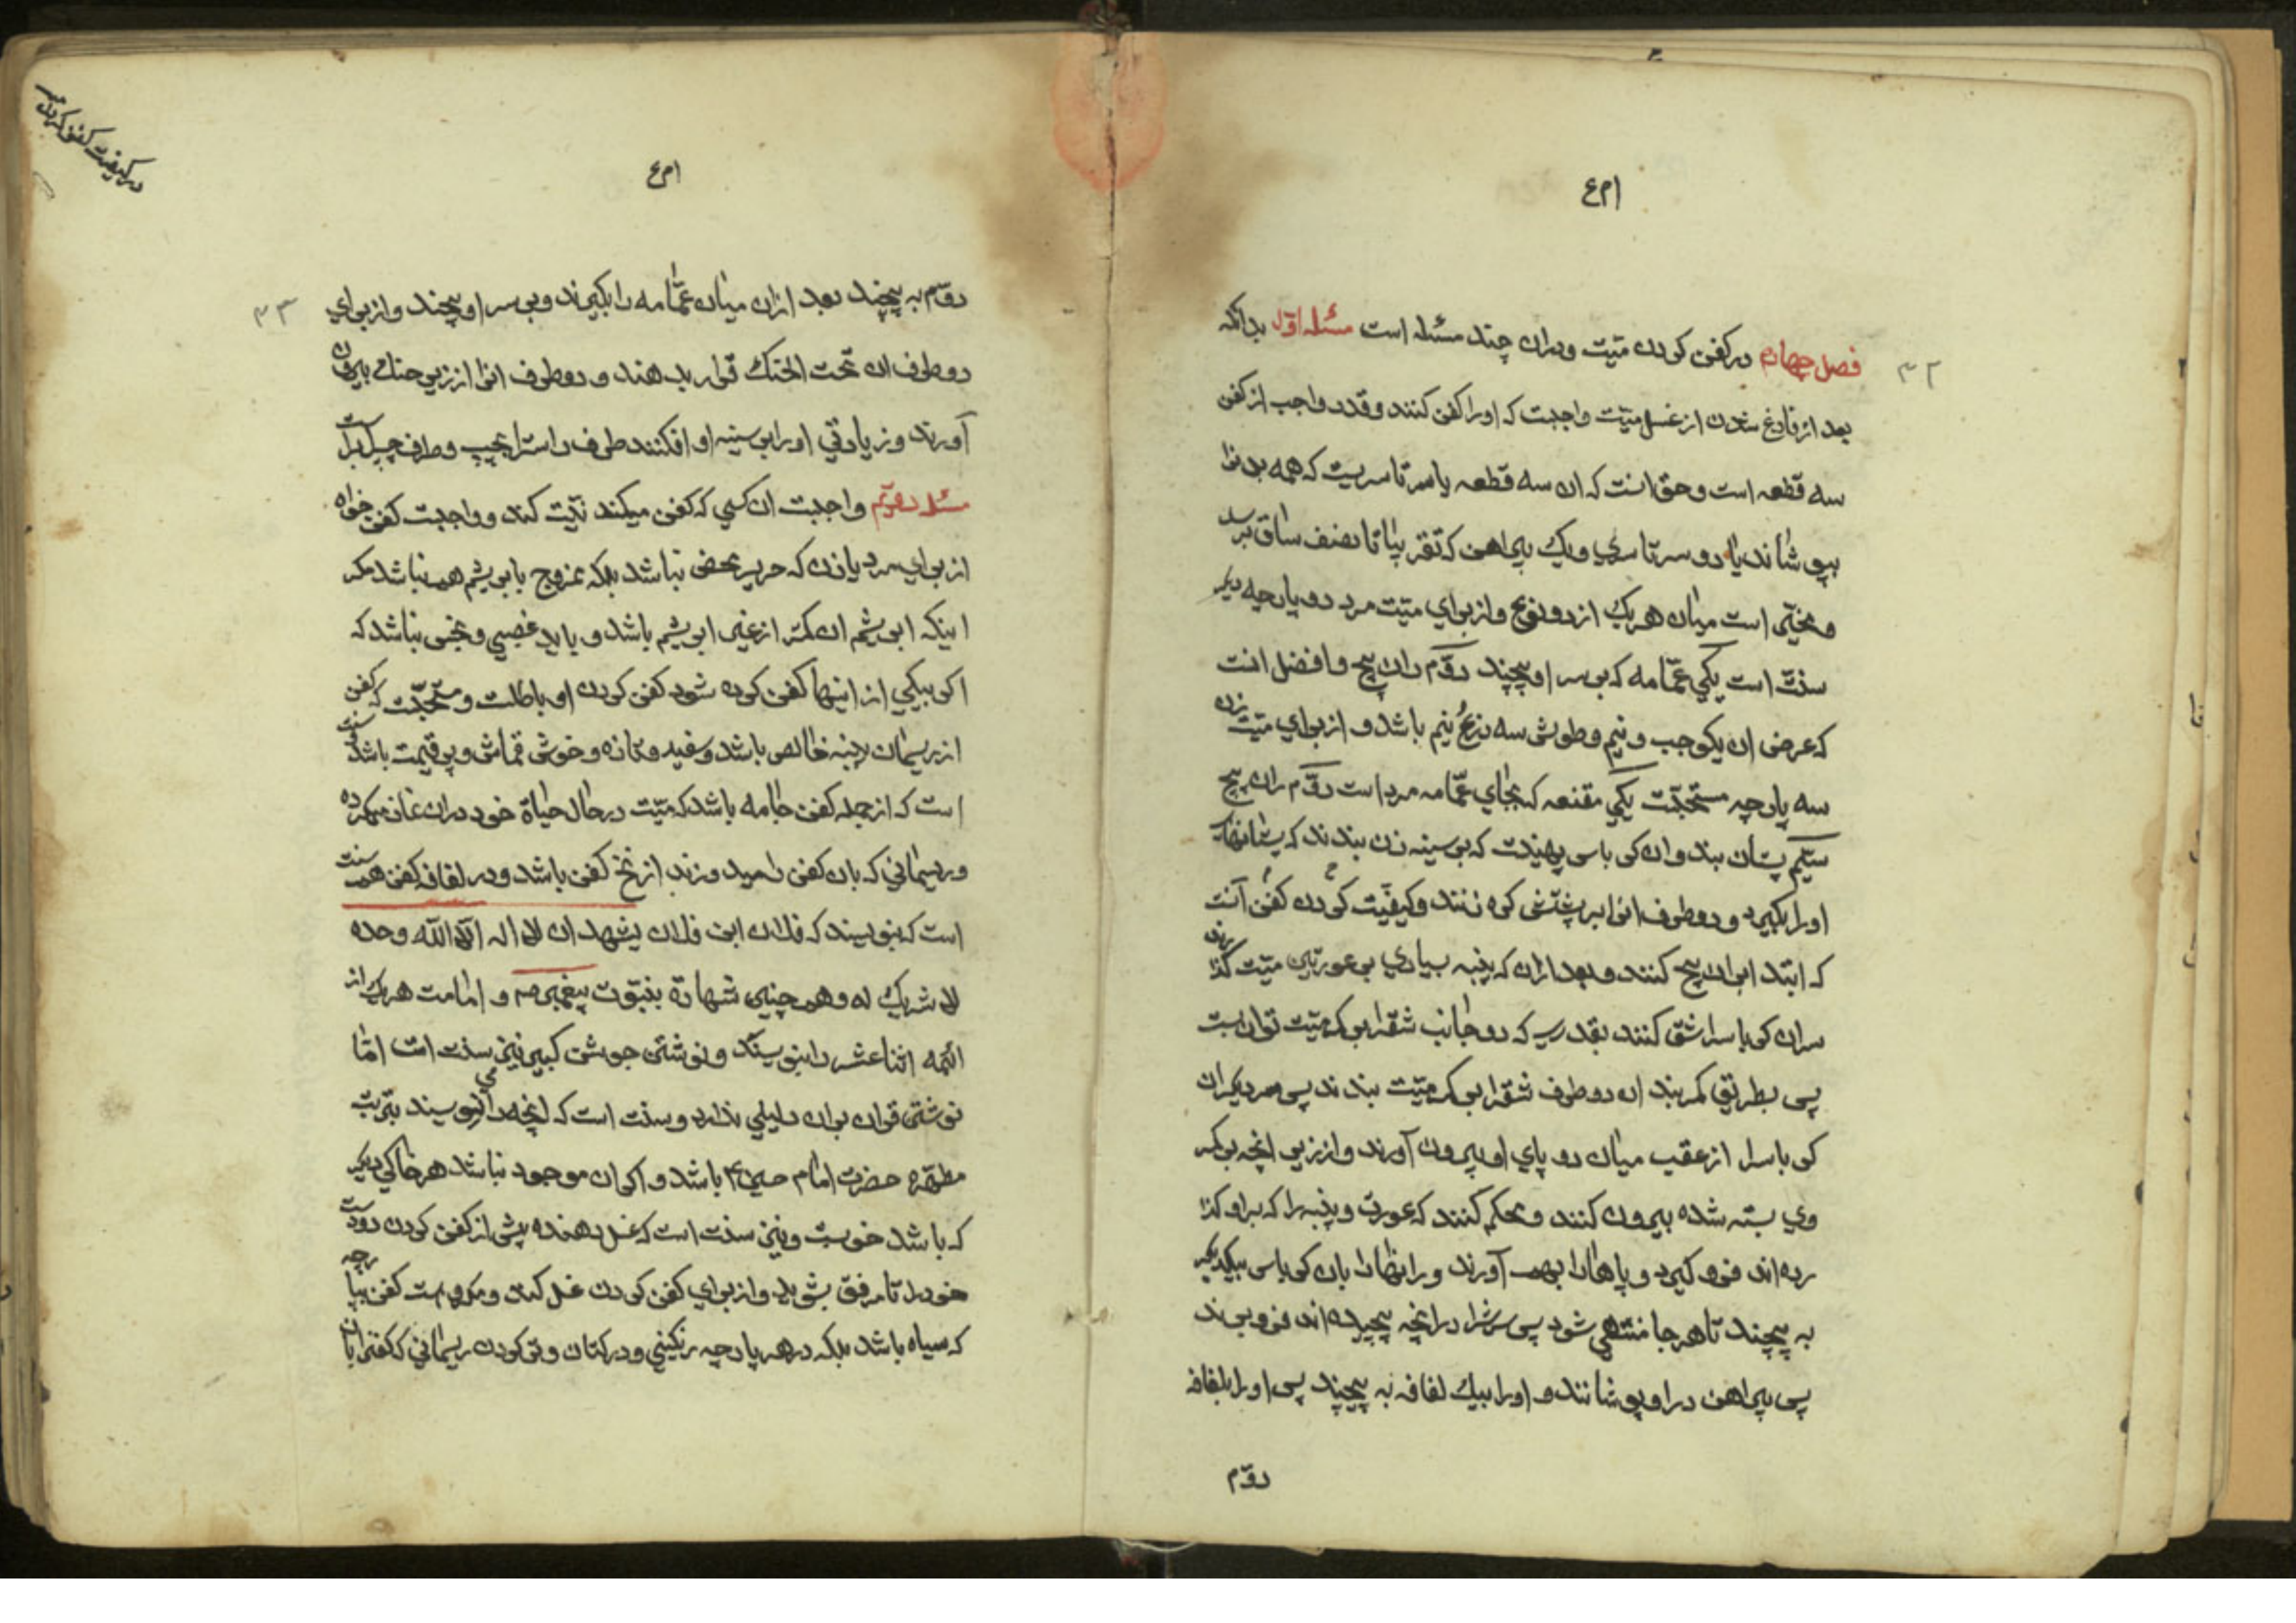 ۳۲
فصل چهارم در کفن کردن میّت ودران چند مسئله است مسئله اوّل بدانکه
بعد از فارغ شدن از غسل میّت واجبت که اورا کفن کنند وقدر واجب از کفن
سه قطعه است وحق انست که ان سه قطعه یا سرتاسریست که همه بدنرا
بپوشاند یا دو سرتاسری ویک پیراهن که تقریبًا تا نصف ساق برسد
ومخیّر است میان هر یک از دو نوع واز برای میّت مرد دو پارچه دیگر
سنّت است یکی عمّامه که بر سر او پیچند دوّم ران پیچ وافضل انست
که عرض ان یکوجب ونیم وطولش سه ذرع ونیم باشد و از برای میّت زن
سه پارچه مستحبّت یکی مقنعه که بجای عمّامه مرد است دوّم ران پیچ
سیّم پستان بند وان کرباس پهنیست که بر سینه زن بندند که پستانهای
اورا بگیرد و دو طرف انرا بر پشتش گره زنند وکیفیّت کردن کفن آنست
که ابتدا بران پیچ کنند وبعد ازان که پنبه بسیاری بر عورتین میّت گذارند
سر ان کرباسرا شق کنند بقدری که دو جانب شقرا بر کمر میّت توان بست
پس بطریق کمربند ان دو طرف شقرا بر کمر میّت بندند پس سر دیگر ان
کرباسرا از عقب میان دو پای او بیرون آورند واز زیر انچه بر کمر
وی بسته شده بیرون کنند ومحکم کنند که عورت وپنبه را که براو گذا
رده اند فرو گیرد و پاهارا بهم آورند و رانهارا بان کرباس بیکدیگر
به پیچند تا هر جا منتهی شود پس سرش را درانچه پیچیده اند فرو برند
پس پیراهن در او پوشانند و اورا بیک لفافه به پیچند پس اورا بلفافه
دوّم
در کیفیت کفن کردن میت
۳۳
دوّم به پیچند بعد ازان میان عمّامه را بگیرند وبر سر او پیچند واز برای
دو طرف ان تحت الحنک قرار بدهند و دو طرف انرا از زیر حنک بیرون
آورند وزیادتی اورا بر سینه او افکنند طرف راسترا بچپ وطرف چپرا براست
مسئله دوّیم واجبت ان کسی که کفن میکند نیّت کند وواجبت کفن خواه
از برای مرد یا زن که حریر محض نباشد بلکه ممزوج بابریشم هم نباشد مگر
اینکه ابریشم ان کمتر از غیر ابریشم باشد و باید غصبی ونجس نباشد که
اگر بیکی از اینها کفن کرده شود کفن کردن او باطلت و مستحبّت که کفن
از ریسمان پنبه خالص باشد وسفید وتازه وخوش قماش وپر قیمت باشد وسنّت
است که از جمله کفن جامه باشد که میّت در حال حیاة خود دران نماز میکرده
وریسمانی که بان کفن را میدوزند از نخ کفن باشد ودر لفافه کفن هم سنت
است که بنویسند که فلان ابن فلان یشهد ان لا اله الّا الله وحده
لا شریک له وهم چنین شهادة بنبوّت پیغمبر ص و امامت هر یک از
ائمّه اثناعشر را بنویسند ونوشتن جوشن کبیر نیز سنت است امّا
نوشتن قران بران دلیلی ندارد وسنت است که انچه را می نویسند بتربت
مطهّره حضرت امام حسین ع باشد و اگر ان موجود نباشد هر خاکی دیگر
که باشد خوبست ونیز سنت است که غسل دهنده پیش از کفن کردن دو دست
خودرا تا مرفق بشوید واز برای کفن کردن غسل کند ومکروهست کفن بپارچه
که سیاه باشد بلکه در هر پارچه رنگینی ودر کتان وتر کردن ریسمانی که کفن را بان